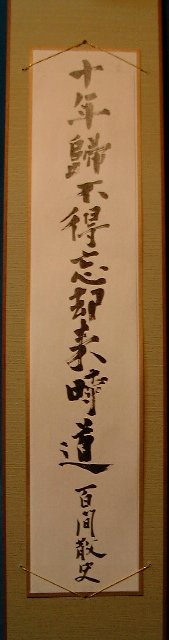 十年歸不得忘却来時道
百間散史